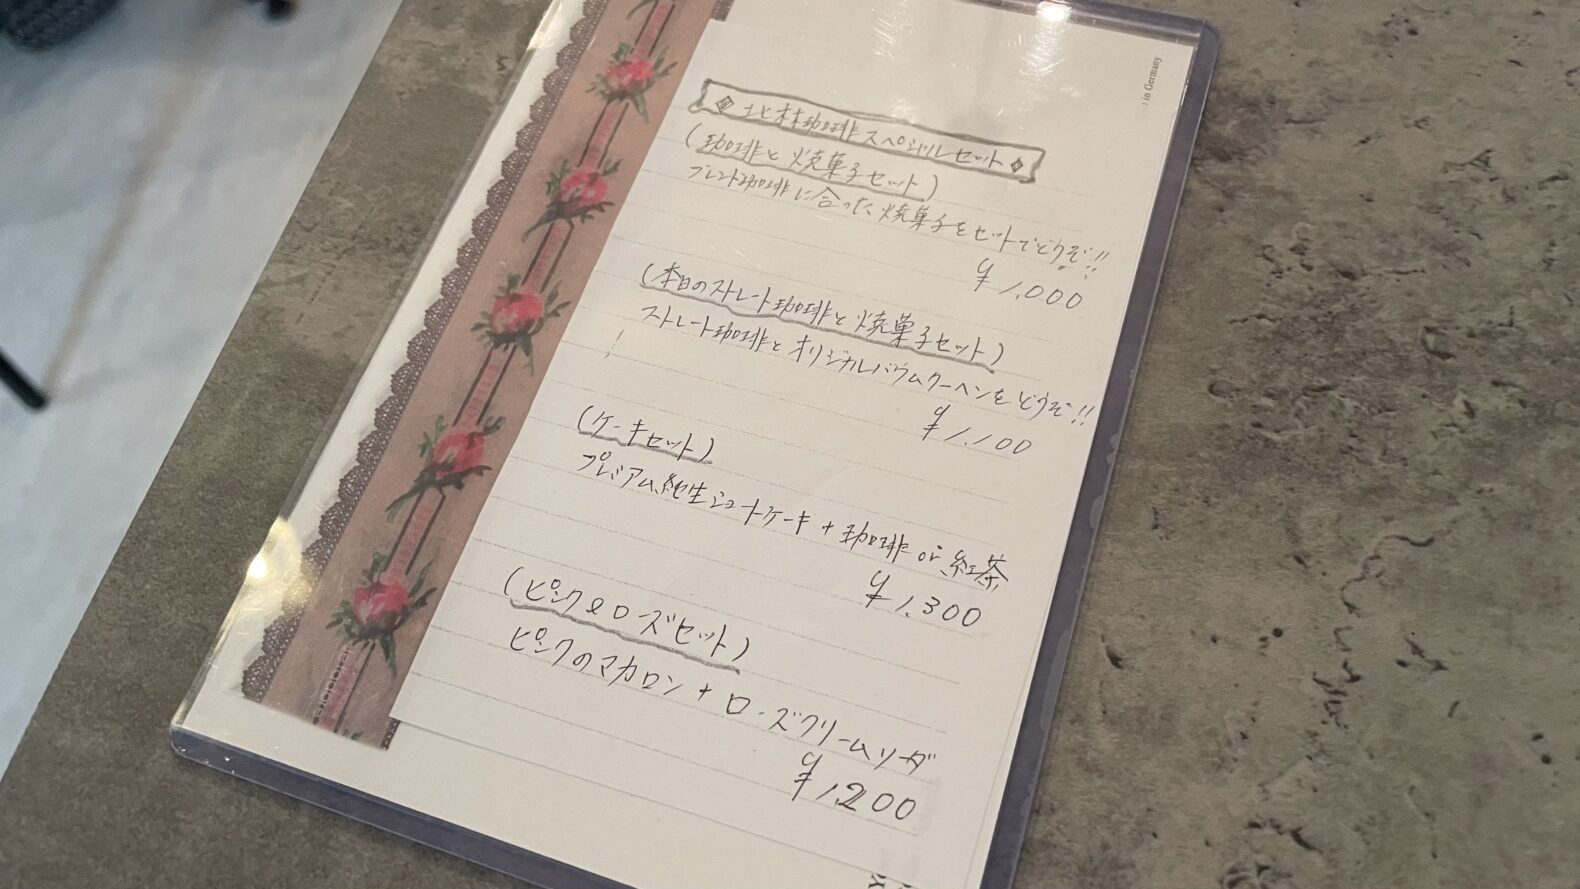 ◈ 北林珈琲スペシャルセット ◈
(珈琲と焼菓子セット)
ブレンド珈琲に合った焼菓子をセットでどうぞ!!
¥1,000
(本日のストレート珈琲と焼菓子セット)
ストレート珈琲とオリジナルバウムクーヘンをどうぞ!!
¥1,100
(ケーキセット)
プレミアム純生ショートケーキ+珈琲or紅茶
¥1,300
(ピンク&ローズセット)
ピンクのマカロン+ローズクリームソーダ
¥1,200
in Germany